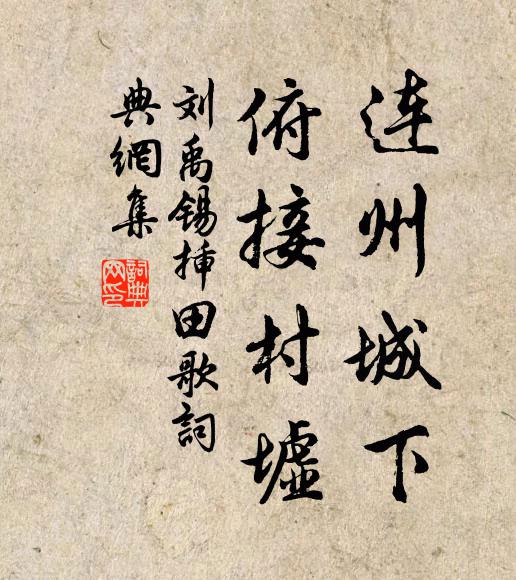 连州城下
俯接村墟
刘禹锡挿田歌詞
典網集
詞典
网印